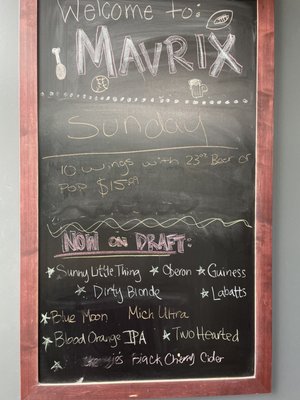 Welcome to:
MAVRIX
Sunday
10 Wings with 23oz Beer or
POP $15.99
NOW ON DRAFT:
Sunny Little Thing Oberon Guiness
Dirty Blonde Labatts
Blue Moon Mich Ultra
Blood Orange IPA Two Hearted
Black Cherry Cider